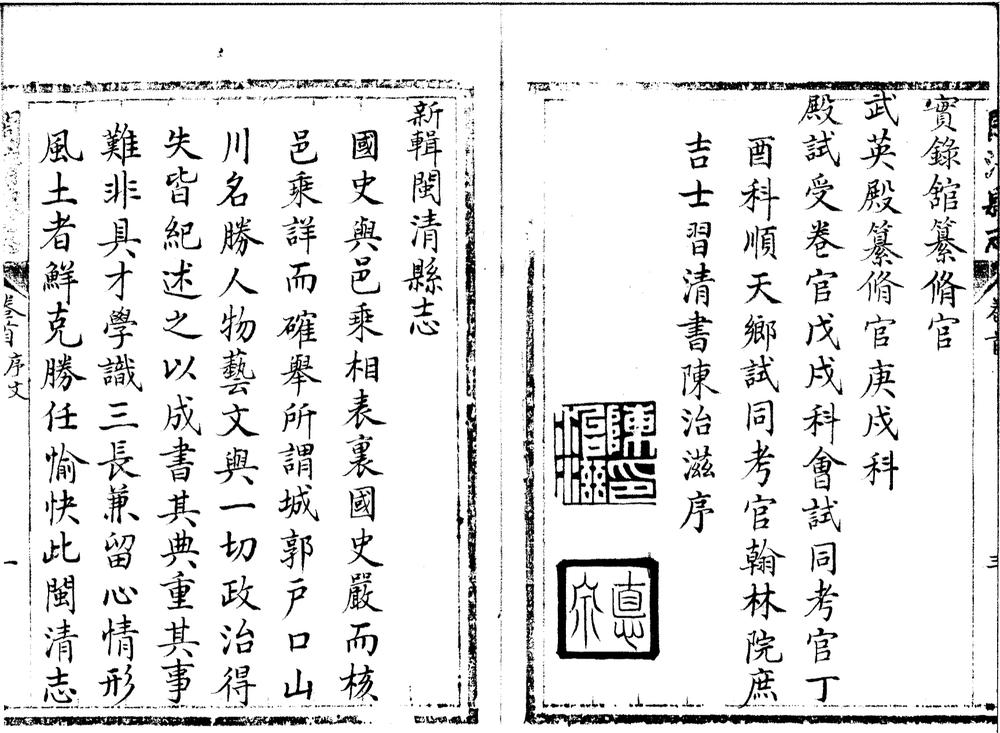 實錄舘纂脩官
武英殿纂脩官庚戌科
殿試受卷官戊戌科會試同考官丁
酉科順天鄉試同考官翰林院庶
吉士習清書陳治滋序
新輯閩清縣志
國史與邑乘相表裏國史嚴而核
邑乘詳而確舉所謂城郭戶口山
川名勝人物藝文與一切政治得
失皆紀述之以成書其典重其事
難非具才學識三長兼留心情形
風土者鮮克勝任愉快此閩清志
卷首 序文
一